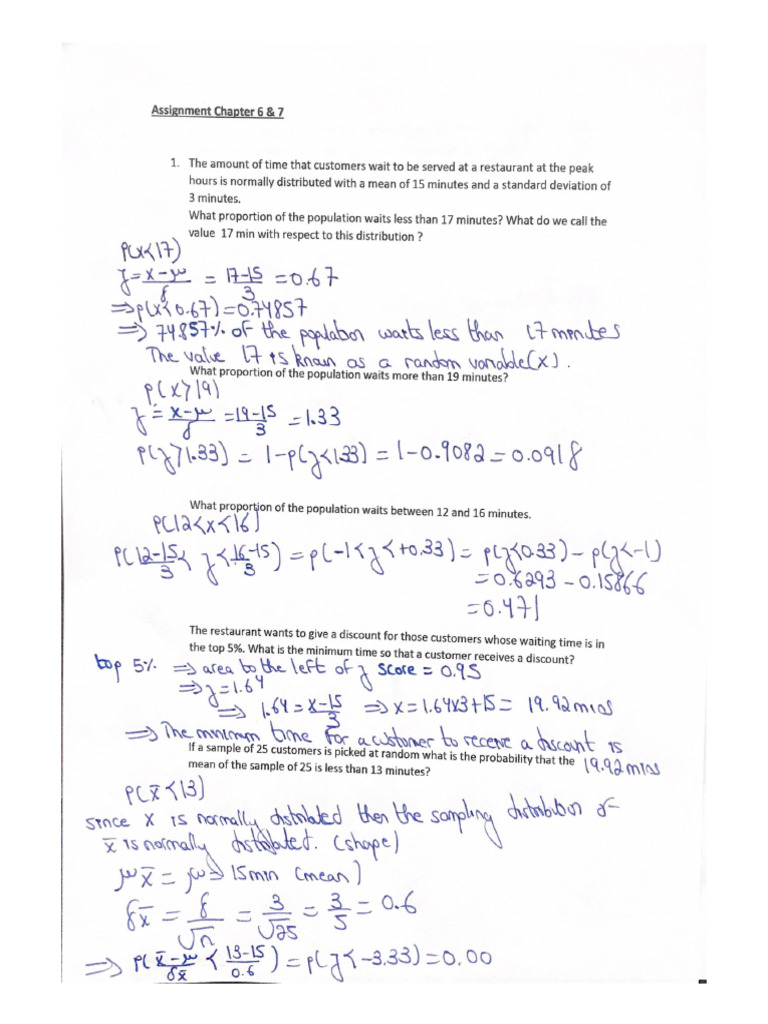 Assignment Chapter 6 & 7
1. The amount of time that customers wait to be served at a restaurant at the peak
hours is normally distributed with a mean of 15 minutes and a standard deviation of
3 minutes.
What proportion of the population waits less than 17 minutes? What do we call the
value 17 min with respect to this distribution ?
P(x<17)
z = x-μ / δ = 17-15 / 3 = 0.67
⇒ p(x<0.67) = 0.74857
⇒ 74.857% of the poplation waits less than 17 minutes
The value 17 is known as a random variable(x).
What proportion of the population waits more than 19 minutes?
p(x>19)
z = x-μ / δ = 19-15 / 3 = 1.33
p(z>1.33) = 1-p(z<1.33) = 1-0.9082 = 0.0918
What proportion of the population waits between 12 and 16 minutes.
P(12<x<16)
P(12-15 / 3 < z < 16-15 / 3) = p(-1<z<+0.33) = p(z<0.33) - p(z<-1)
= 0.6293 - 0.15866
= 0.471
The restaurant wants to give a discount for those customers whose waiting time is in
the top 5%. What is the minimum time so that a customer receives a discount?
top 5% ⇒ area to the left of z score = 0.95
⇒ z = 1.64
⇒ 1.64 = x-15 / 3 ⇒ x = 1.64x3+15 = 19.92 mins
⇒ The minimum time for a customer to receive a discount is
19.92 mins
If a sample of 25 customers is picked at random what is the probability that the
mean of the sample of 25 is less than 13 minutes?
P(x̄<13)
since x is normally distributed then the sampling distribution of
x̄ is normally distributed. (shape)
μx̄ = μ = 15min (mean)
δx̄ = δ / √n = 3 / √25 = 3 / 5 = 0.6
⇒ p(x̄-μ / δx̄ < 13-15 / 0.6) = p(z<-3.33) = 0.00